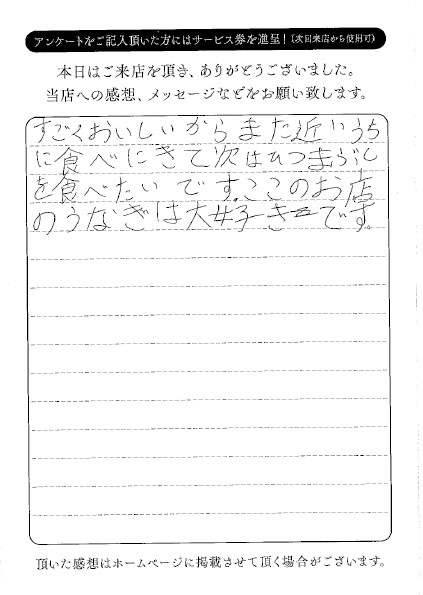 アンケートをご記入頂いた方にはサービス券を進呈！(次回来店から使用可)
本日はご来店を頂き、ありがとうございました。
当店への感想、メッセージなどをお願い致します。
すごくおいしいからまた近いうち
に食べにきて次はひつまぶし
を食べたいです。ここのお店
のうなぎは大好きです。
頂いた感想はホームページに掲載させて頂く場合がございます。